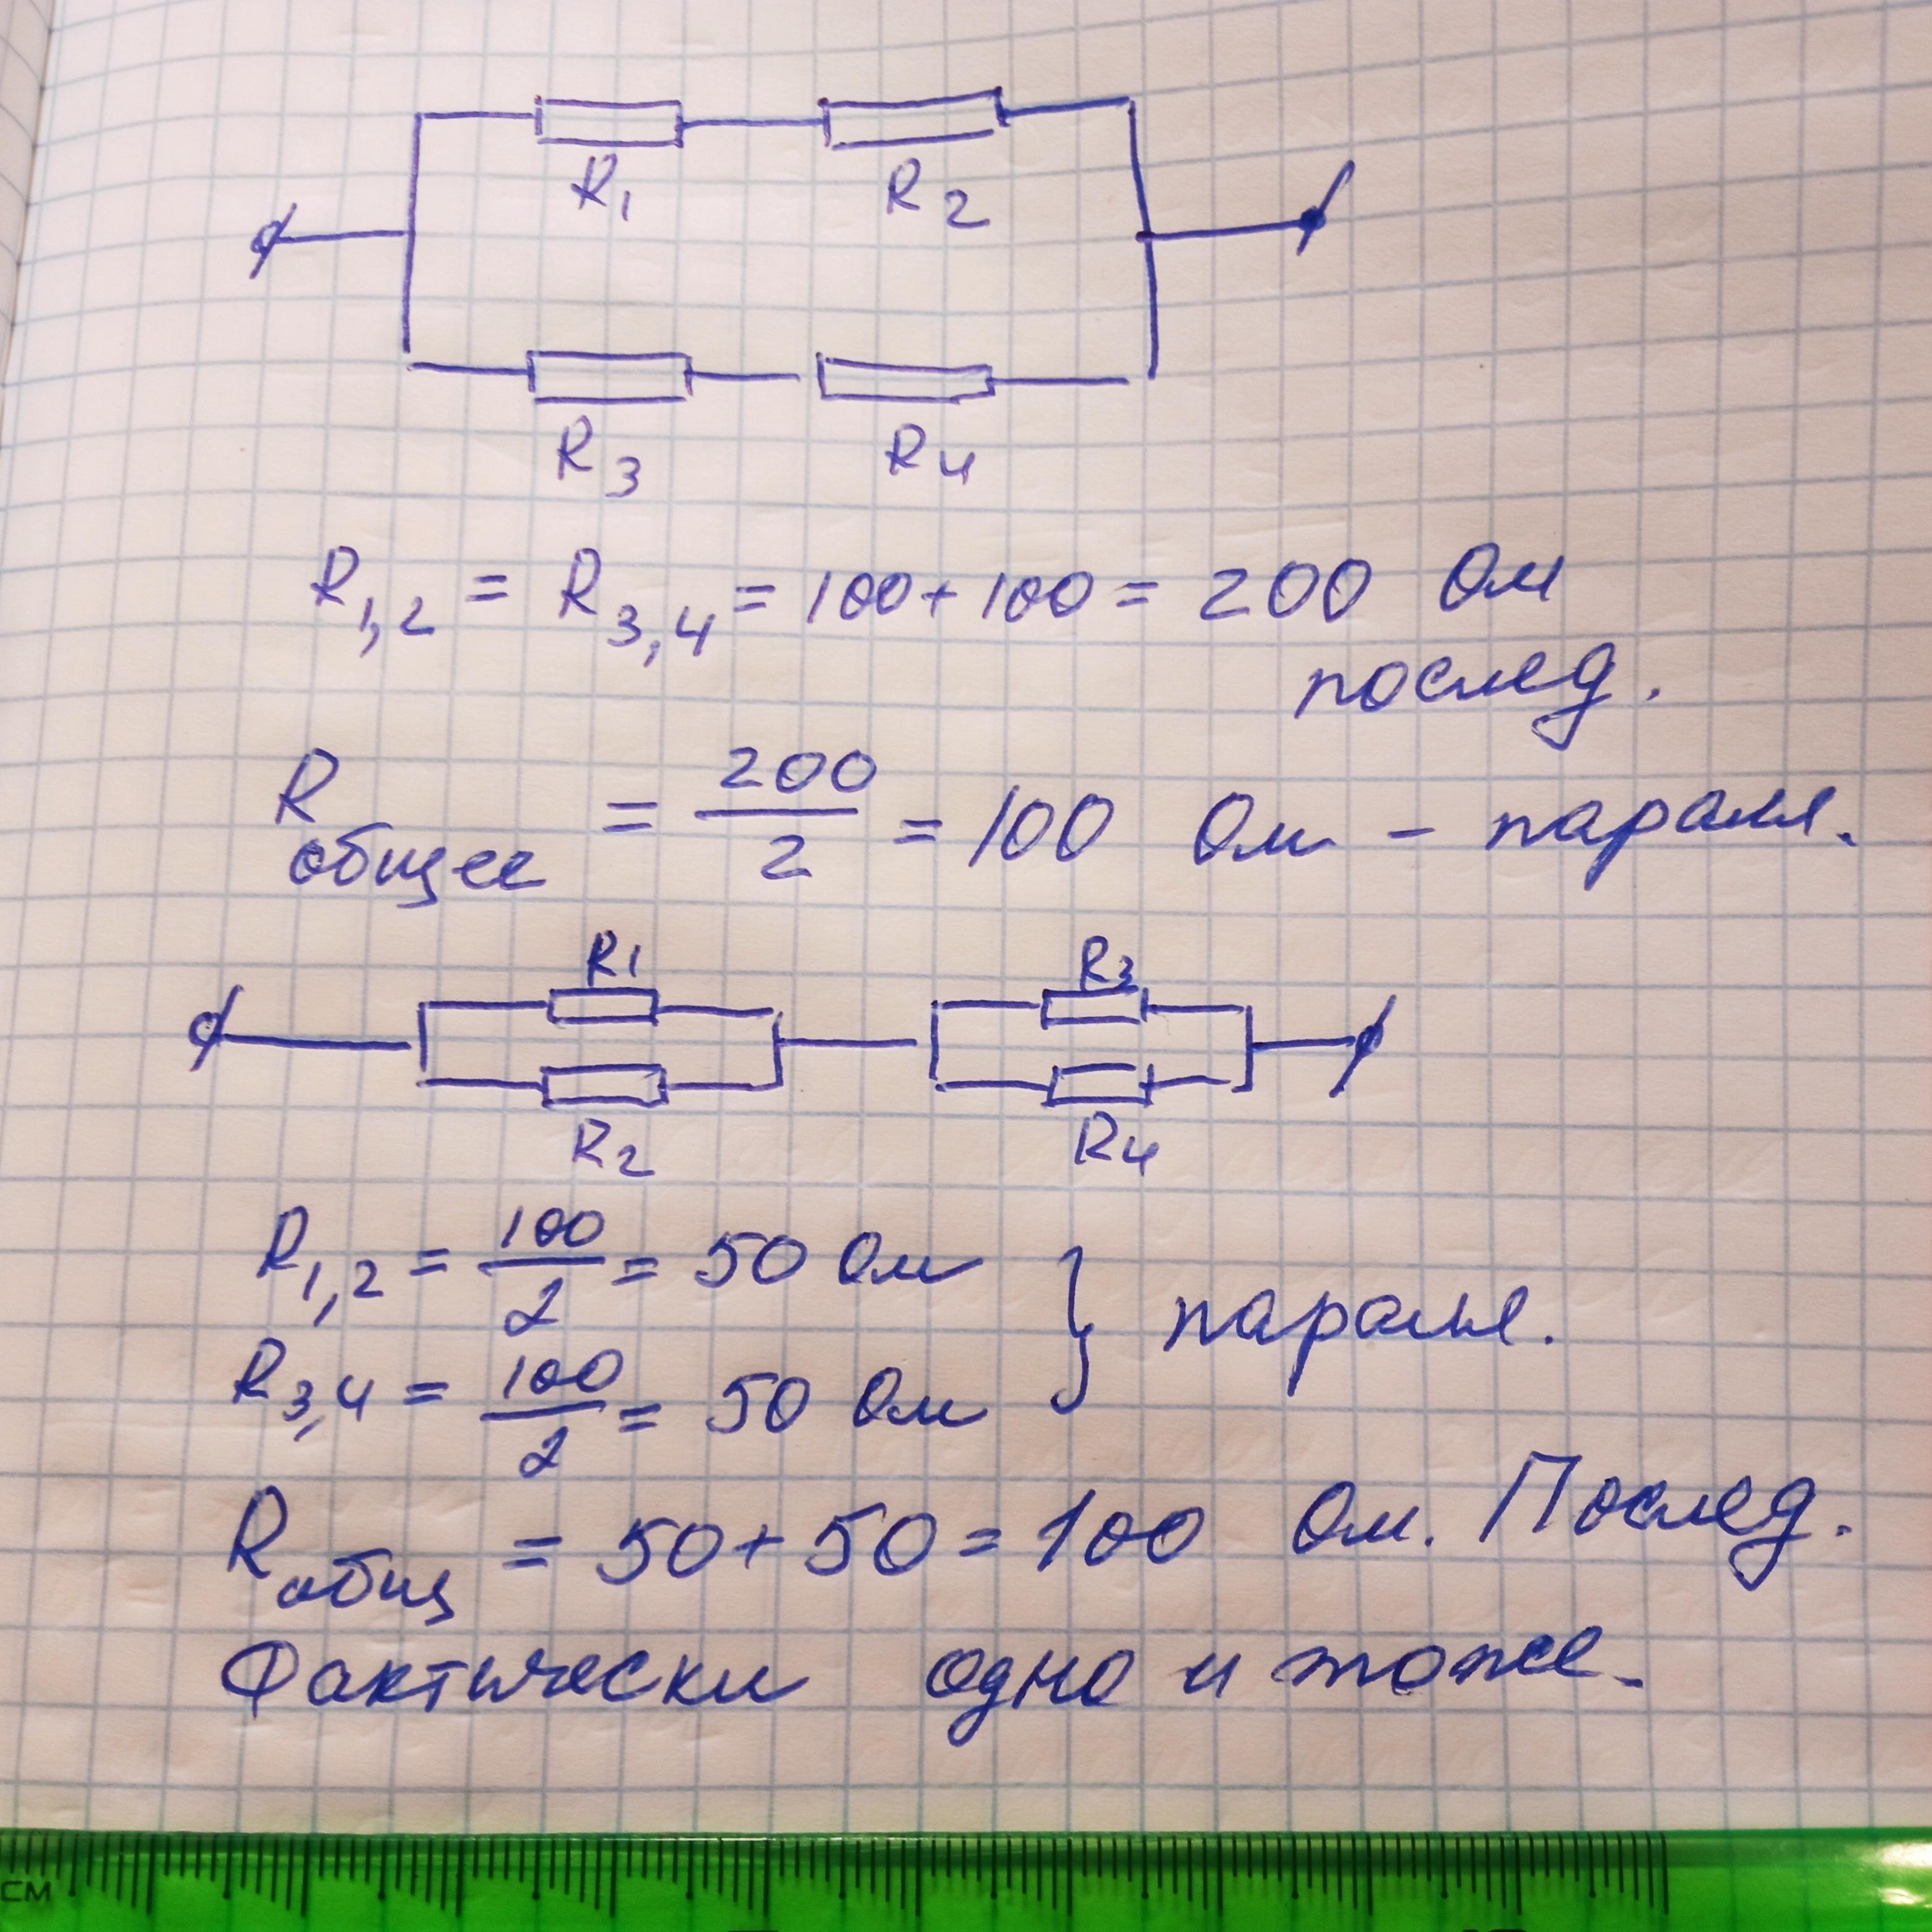 R1 R2
R3 R4
R1,2 = R3,4 = 100+100 = 200 Ом
послед.
Rобщее = 200/2 = 100 Ом - паралл.
R1 R3
R2 R4
R1,2 = 100/2 = 50 Ом } паралл.
R3,4 = 100/2 = 50 Ом
Rобщ = 50+50 = 100 Ом. Послед.
Фактически одно и тоже.
см